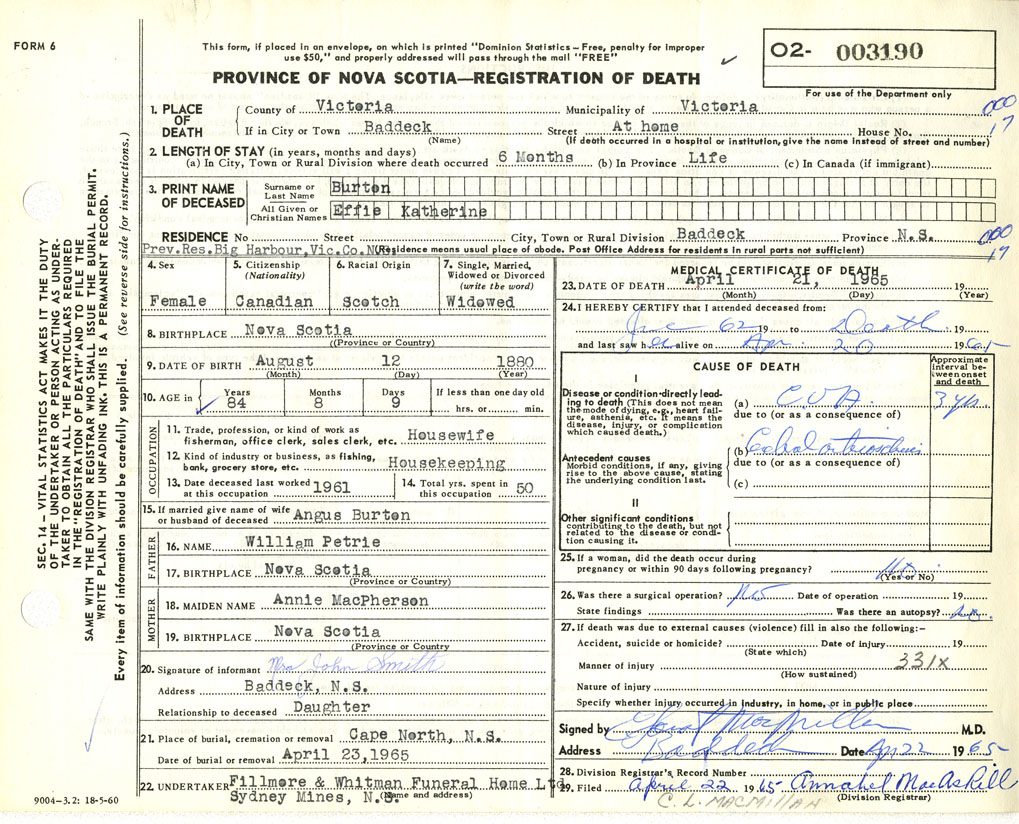 FORM 6
This form, if placed in an envelope, on which is printed "Dominion Statistics – Free, penalty for improper
use $50," and properly addressed will pass through the mail "FREE"
PROVINCE OF NOVA SCOTIA—REGISTRATION OF DEATH
O2- 003190
For use of the Department only
SEC. 14 – VITAL STATISTICS ACT MAKES IT THE DUTY
OF THE UNDERTAKER OR PERSON ACTING AS UNDER-
TAKER TO OBTAIN ALL THE PARTICULARS REQUIRED
IN THE "REGISTRATION OF DEATH" AND TO FILE THE
SAME WITH THE DIVISION REGISTRAR WHO SHALL ISSUE THE BURIAL PERMIT.
WRITE PLAINLY WITH UNFADING INK. THIS IS A PERMANENT RECORD.
Every item of information should be carefully supplied. (See reverse side for instructions.)
1. PLACE OF DEATH
County of Victoria Municipality of Victoria
000
17
If in City or Town Baddeck Street At home House No.
(Name) (If death occurred in a hospital or institution, give the name instead of street and number)
2. LENGTH OF STAY (in years, months and days)
(a) In City, Town or Rural Division where death occurred 6 Months (b) In Province Life (c) In Canada (if immigrant)
3. PRINT NAME OF DECEASED
Surname or Last Name Burton
All Given or Christian Names Effie Katherine
RESIDENCE No Street City, Town or Rural Division Baddeck Province N.S.
000
17
Prev.Res.Big Harbour,Vic.Co.N.S. (Residence means usual place of abode. Post Office Address for residents in rural parts not sufficient)
4. Sex
Female
5. Citizenship (Nationality)
Canadian
6. Racial Origin
Scotch
7. Single, Married, Widowed or Divorced (write the word)
Widowed
8. BIRTHPLACE Nova Scotia
(Province or Country)
9. DATE OF BIRTH August 12 1880
(Month) (Day) (Year)
10. AGE in Years Months Days If less than one day old
84 8 9 hrs. or min.
OCCUPATION
11. Trade, profession, or kind of work as
fisherman, office clerk, sales clerk, etc. Housewife
12. Kind of industry or business, as fishing,
bank, grocery store, etc. Housekeeping
13. Date deceased last worked at this occupation 1961
14. Total yrs. spent in this occupation 50
15. If married give name of wife or husband of deceased Angus Burton
FATHER
16. NAME William Petrie
17. BIRTHPLACE Nova Scotia
(Province or Country)
MOTHER
18. MAIDEN NAME Annie MacPherson
19. BIRTHPLACE Nova Scotia
(Province or Country)
20. Signature of informant Mrs John Smith
Address Baddeck, N.S.
Relationship to deceased Daughter
21. Place of burial, cremation or removal Cape North, N.S.
Date of burial or removal April 23,1965
22. UNDERTAKER Fillmore & Whitman Funeral Home Ltd
Sydney Mines, N.S. (Name and address)
9004–3.2: 18-5-60
MEDICAL CERTIFICATE OF DEATH
23. DATE OF DEATH April 21, 1965 19
(Month) (Day) (Year)
24. I HEREBY CERTIFY that I attended deceased from:
62 19 to Death 19
and last saw her alive on Apr 20 1965
CAUSE OF DEATH
Approximate interval between onset and death
I
Disease or condition directly leading to death (This does not mean
the mode of dying, e.g., heart failure, asthenia, etc. It means the
disease, injury, or complication which caused death.)
(a) C.V.A. 3 yrs.
due to (or as a consequence of)
Antecedent causes
Morbid conditions, if any, giving rise to the above cause, stating
the underlying condition last.
(b)
due to (or as a consequence of)
(c)
II
Other significant conditions
contributing to the death, but not related to the disease or condition causing it.
25. If a woman, did the death occur during
pregnancy or within 90 days following pregnancy? No
(Yes or No)
26. Was there a surgical operation? No Date of operation 19
State findings Was there an autopsy? No
27. If death was due to external causes (violence) fill in also the following:–
Accident, suicide or homicide? Date of injury 19
(State which)
Manner of injury 331X
(How sustained)
Nature of injury
Specify whether injury occurred in industry, in home, or in public place
Signed by M.D.
Address Baddeck Date Ap 22 1965
28. Division Registrar's Record Number
29. Filed April 22 1965 Annabel MacAskill
(Division Registrar)
C. L. MACMILLAN